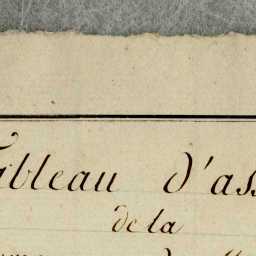 Tableau d'ass
de la